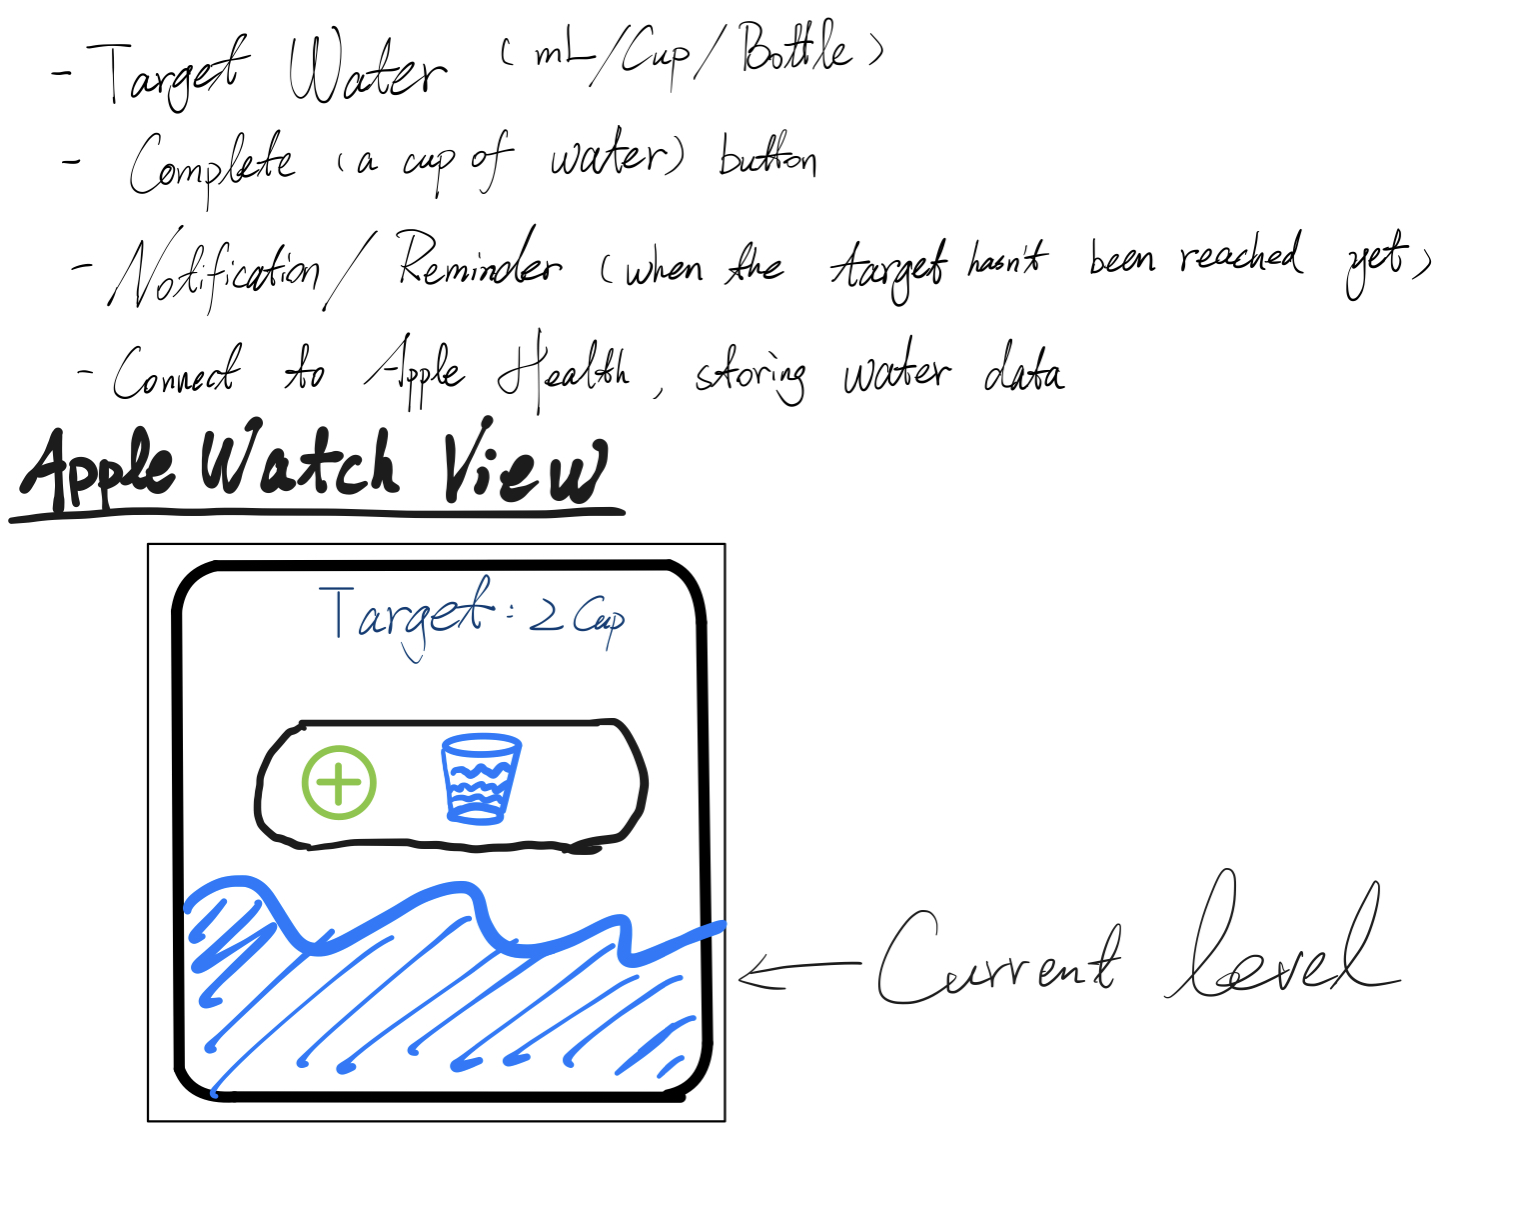 - Target Water (mL/Cup/Bottle)
- Complete (a cup of water) button
- Notification/Reminder (when the target hasn't been reached yet)
- Connect to Apple Health, storing water data
Apple Watch View
Target: 2 Cup
Current level